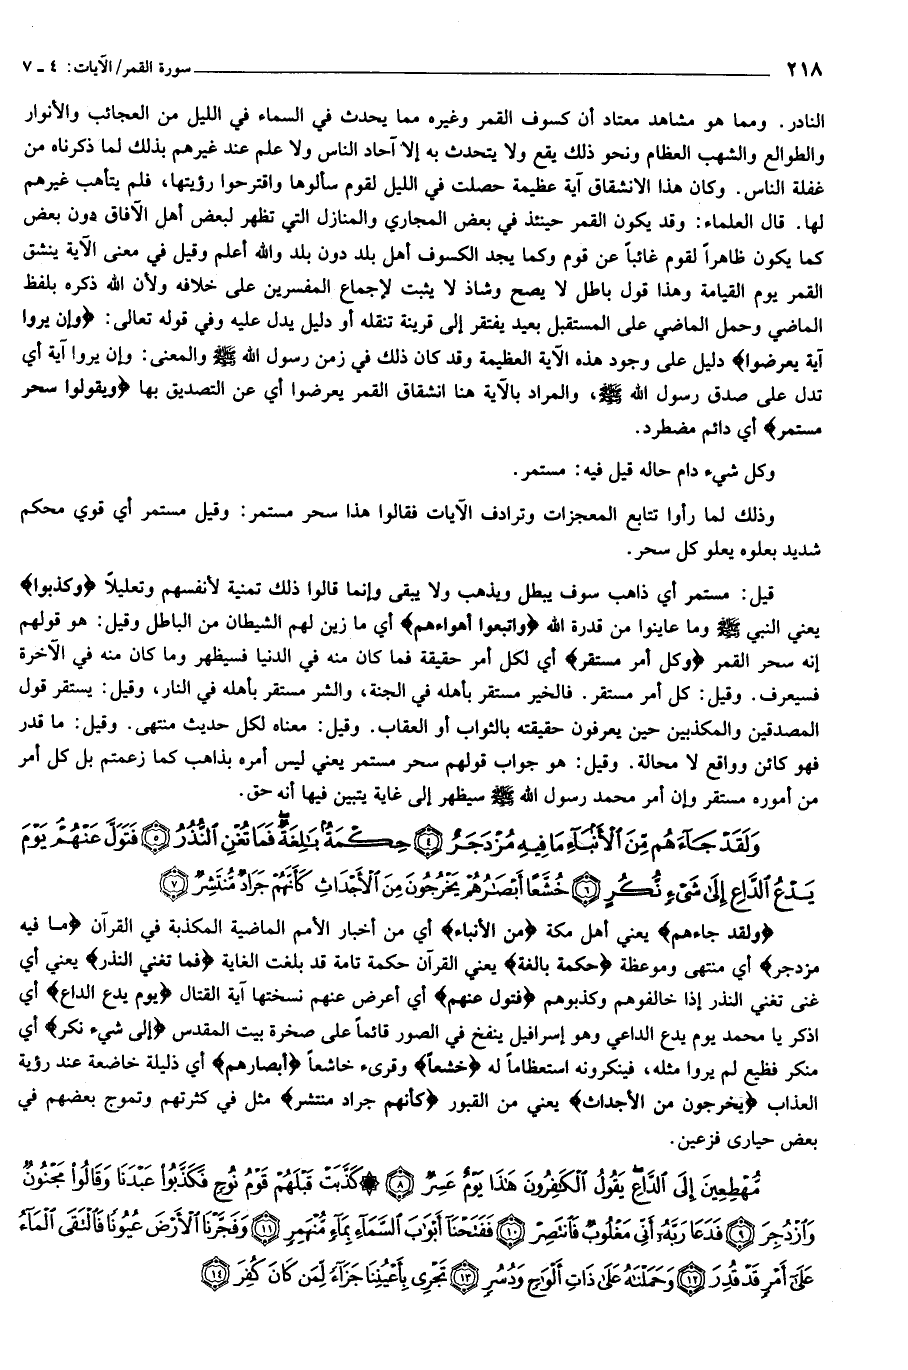 ٢١٨ سورة القمر/ الآيات: ٤ - ٧
النادر. ومما هو مشاهد معتاد أن كسوف القمر وغيره مما يحدث في السماء في الليل من العجائب والأنوار
والطوالع والشهب العظام ونحو ذلك يقع ولا يتحدث به إلا آحاد الناس ولا علم عند غيرهم بذلك لما ذكرناه من
غفلة الناس. وكان هذا الانشقاق آية عظيمة حصلت في الليل لقوم سألوها واقترحوا رؤيتها، فلم يتأهب غيرهم
لها. قال العلماء: وقد يكون القمر حينئذ في بعض المجاري والمنازل التي تظهر لبعض أهل الآفاق دون بعض
كما يكون ظاهراً لقوم غائباً عن قوم وكما يجد الكسوف أهل بلد دون بلد والله أعلم وقيل في معنى الآية ينشق
القمر يوم القيامة وهذا قول باطل لا يصح وشاذ لا يثبت لإجماع المفسرين على خلافه ولأن الله ذكره بلفظ
الماضي وحمل الماضي على المستقبل بعيد يفتقر إلى قرينة تنقله أو دليل يدل عليه وفي قوله تعالى: ﴿وإن يروا
آية يعرضوا﴾ دليل على وجود هذه الآية العظيمة وقد كان ذلك في زمن رسول الله ﷺ والمعنى: وإن يروا آية أي
تدل على صدق رسول الله ﷺ، والمراد بالآية هنا انشقاق القمر يعرضوا أي عن التصديق بها ﴿ويقولوا سحر
مستمر﴾ أي دائم مضطرد.
وكل شيء دام حاله قيل فيه: مستمر.
وذلك لما رأوا تتابع المعجزات وترادف الآيات فقالوا هذا سحر مستمر: وقيل مستمر أي قوي محكم
شديد بعلوه يعلو كل سحر.
قيل: مستمر أي ذاهب سوف يبطل ويذهب ولا يبقى وإنما قالوا ذلك تمنية لأنفسهم وتعليلاً ﴿وكذبوا﴾
يعني النبي ﷺ وما عاينوا من قدرة الله ﴿واتبعوا أهواءهم﴾ أي ما زين لهم الشيطان من الباطل وقيل: هو قولهم
إنه سحر القمر ﴿وكل أمر مستقر﴾ أي لكل أمر حقيقة فما كان منه في الدنيا فسيظهر وما كان منه في الآخرة
فسيعرف. وقيل: كل أمر مستقر. فالخير مستقر بأهله في الجنة، والشر مستقر بأهله في النار، وقيل: يستقر قول
المصدقين والمكذبين حين يعرفون حقيقته بالثواب أو العقاب. وقيل: معناه لكل حديث منتهى. وقيل: ما قدر
فهو كائن وواقع لا محالة. وقيل: هو جواب قولهم سحر مستمر يعني ليس أمره بذاهب كما زعمتم بل كل أمر
من أموره مستقر وإن أمر محمد رسول الله ﷺ سيظهر إلى غاية يتبين فيها أنه حق.
وَلَقَدْ جَآءَهُم مِّنَ ٱلْأَنۢبَآءِ مَا فِيهِ مُزْدَجَرٌ ﴿٤﴾ حِكْمَةٌۢ بَٰلِغَةٌ فَمَا تُغْنِ ٱلنُّذُرُ ﴿٥﴾ فَتَوَلَّ عَنْهُمْ يَوْمَ
يَدْعُ ٱلدَّاعِ إِلَىٰ شَىْءٍ نُّكُرٍ ﴿٦﴾ خُشَّعًا أَبْصَٰرُهُمْ يَخْرُجُونَ مِنَ ٱلْأَجْدَاثِ كَأَنَّهُمْ جَرَادٌ مُّنتَشِرٌ ﴿٧﴾
﴿ولقد جاءهم﴾ يعني أهل مكة ﴿من الأنباء﴾ أي من أخبار الأمم الماضية المكذبة في القرآن ﴿ما فيه
مزدجر﴾ أي منتهى وموعظة ﴿حكمة بالغة﴾ يعني القرآن حكمة تامة قد بلغت الغاية ﴿فما تغني النذر﴾ يعني أي
غنى تغني النذر إذا خالفوهم وكذبوهم ﴿فتول عنهم﴾ أي أعرض عنهم نسختها آية القتال ﴿يوم يدع الداع﴾ أي
اذكر يا محمد يوم يدع الداعي وهو إسرافيل ينفخ في الصور قائماً على صخرة بيت المقدس ﴿إلى شيء نكر﴾ أي
منكر فظيع لم يروا مثله، فينكرونه استعظاماً له ﴿خشعاً﴾ وقرىء خاشعاً ﴿أبصارهم﴾ أي ذليلة خاضعة عند رؤية
العذاب ﴿يخرجون من الأجداث﴾ يعني من القبور ﴿كأنهم جراد منتشر﴾ مثل في كثرتهم وتموج بعضهم في
بعض حيارى فزعين.
مُّهْطِعِينَ إِلَى ٱلدَّاعِ يَقُولُ ٱلْكَٰفِرُونَ هَٰذَا يَوْمٌ عَسِرٌ ﴿٨﴾ ۞ كَذَّبَتْ قَبْلَهُمْ قَوْمُ نُوحٍ فَكَذَّبُوا۟ عَبْدَنَا وَقَالُوا۟ مَجْنُونٌ
وَٱزْدُجِرَ ﴿٩﴾ فَدَعَا رَبَّهُۥٓ أَنِّى مَغْلُوبٌ فَٱنتَصِرْ ﴿١٠﴾ فَفَتَحْنَآ أَبْوَٰبَ ٱلسَّمَآءِ بِمَآءٍ مُّنْهَمِرٍ ﴿١١﴾ وَفَجَّرْنَا ٱلْأَرْضَ عُيُونًا فَٱلْتَقَى ٱلْمَآءُ
عَلَىٰٓ أَمْرٍ قَدْ قُدِرَ ﴿١٢﴾ وَحَمَلْنَٰهُ عَلَىٰ ذَاتِ أَلْوَٰحٍ وَدُسُرٍ ﴿١٣﴾ تَجْرِى بِأَعْيُنِنَا جَزَآءً لِّمَن كَانَ كُفِرَ ﴿١٤﴾